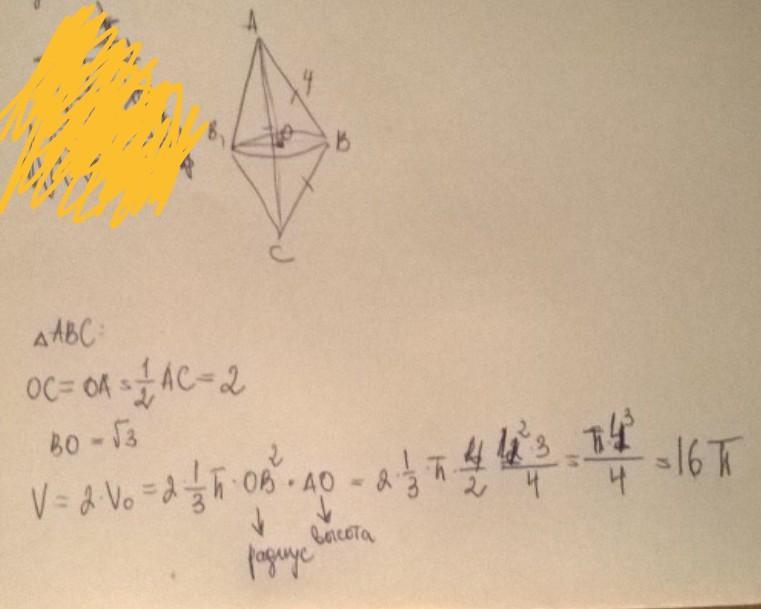 A
4
B₁
O
B
C
△ABC:
OC = OA = 1/2 AC = 2
BO = √3
V = 2·V₀ = 2·1/3 π·OB²·AO = 2·1/3·π·4/2·4²·3/4 = π4³/4 = 16π
радиус
высота